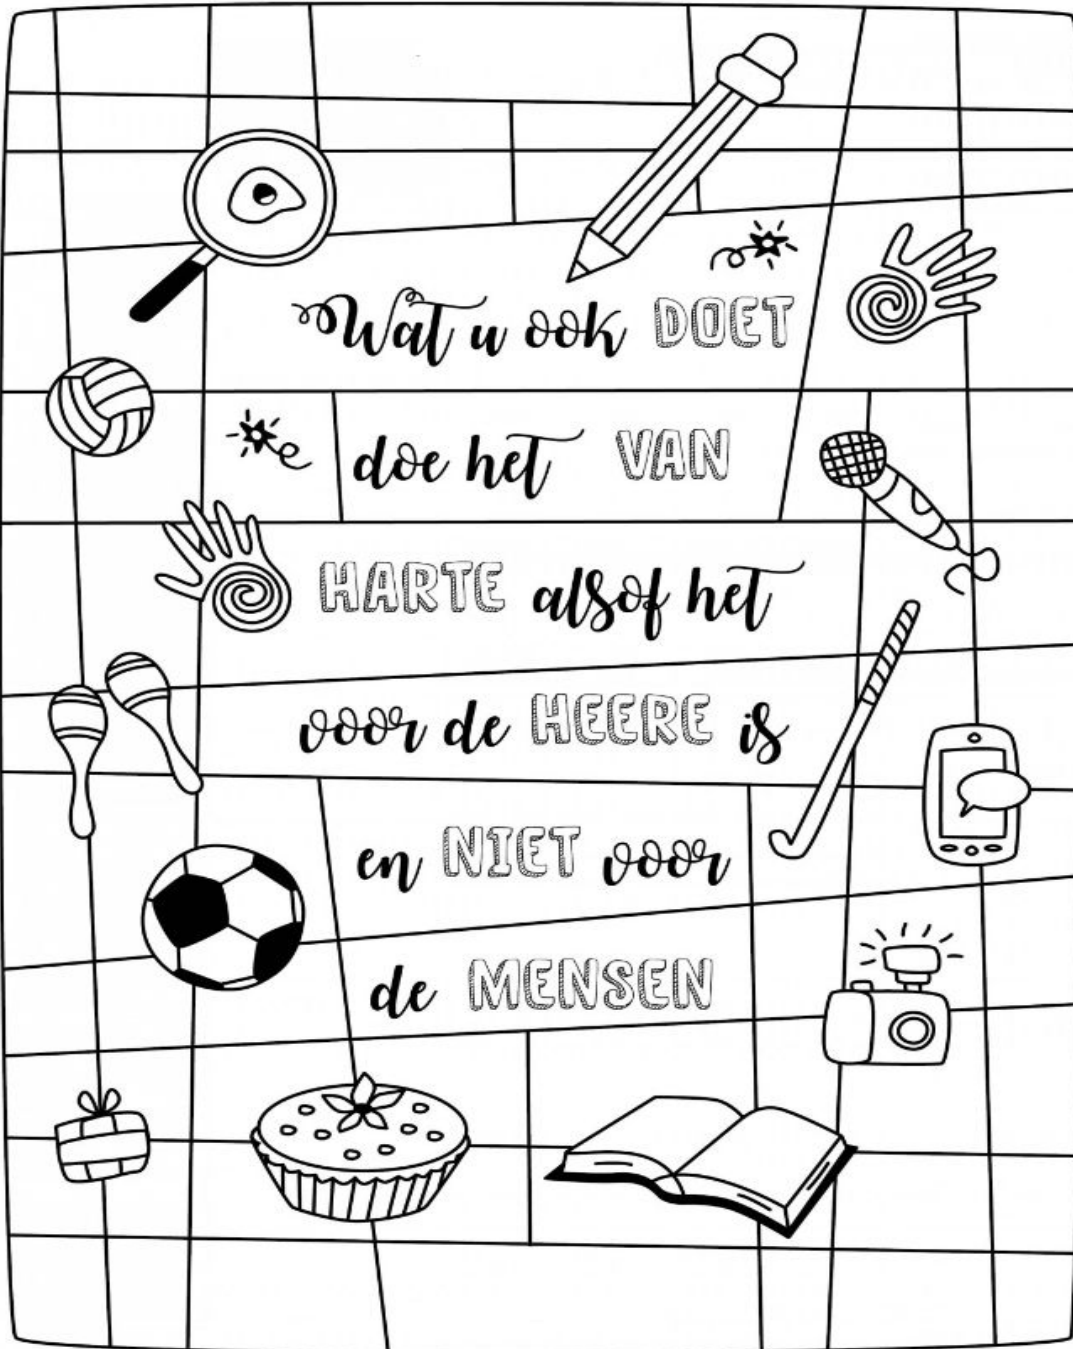 Wat u ook DOET
doe het VAN
HARTE alsof het
voor de HEERE is
en NIET voor
de MENSEN